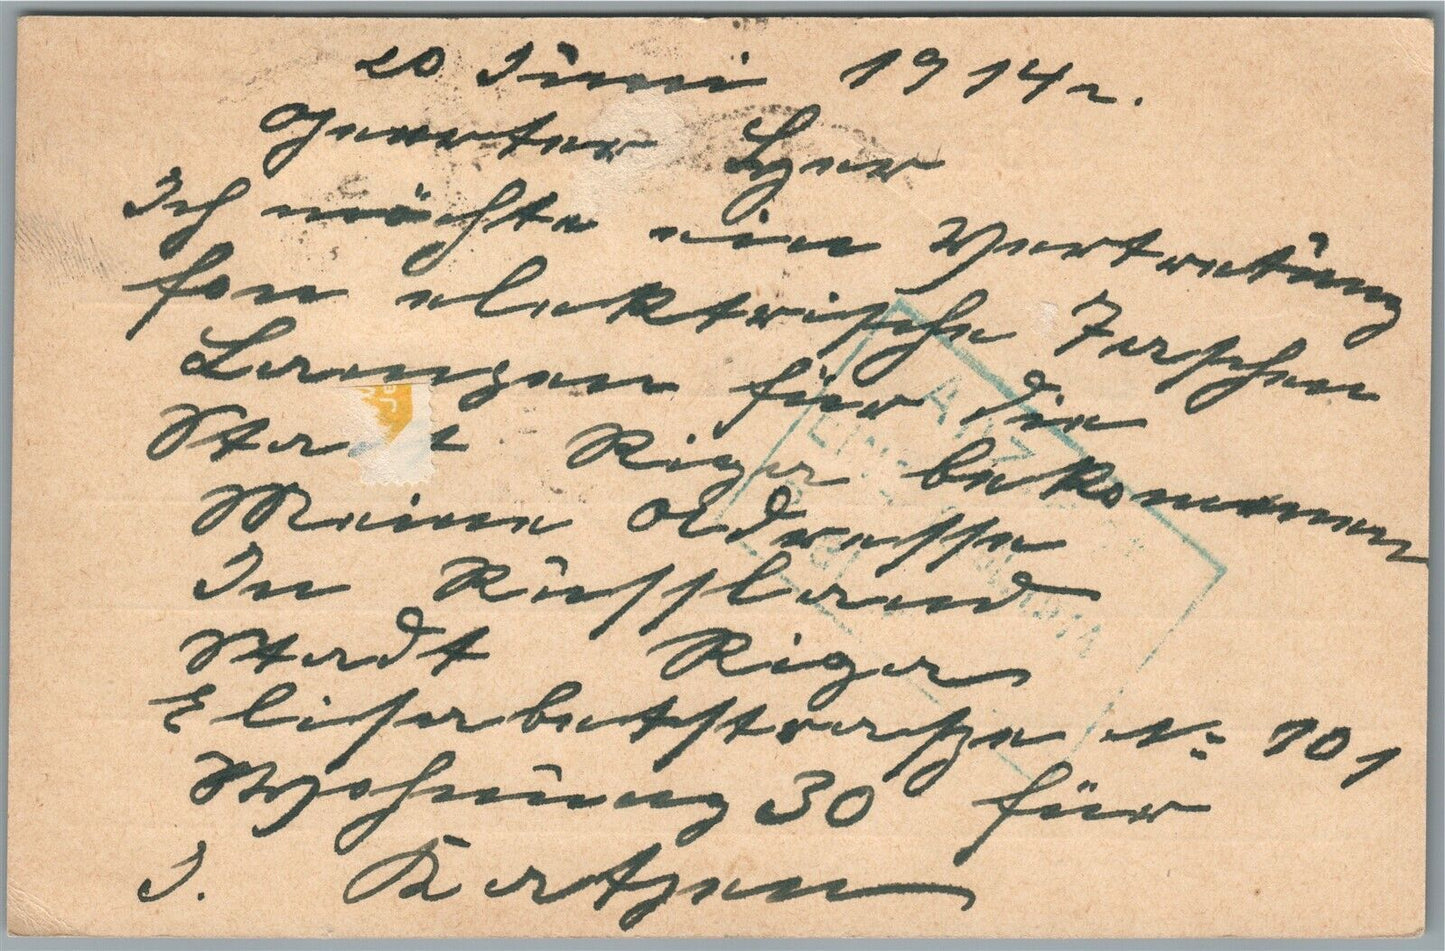 20 Juni 1914 r.
Geerter Herr
Ich möchte ein Vertretüng
fon elektrische Taschen
Lampen für die
Stadt Riga bekommen
Meine Adresse
In Rüssland
Stadt Riga
Elisabetstrasse № 101
Wohnüng 30 für
J. Katzen